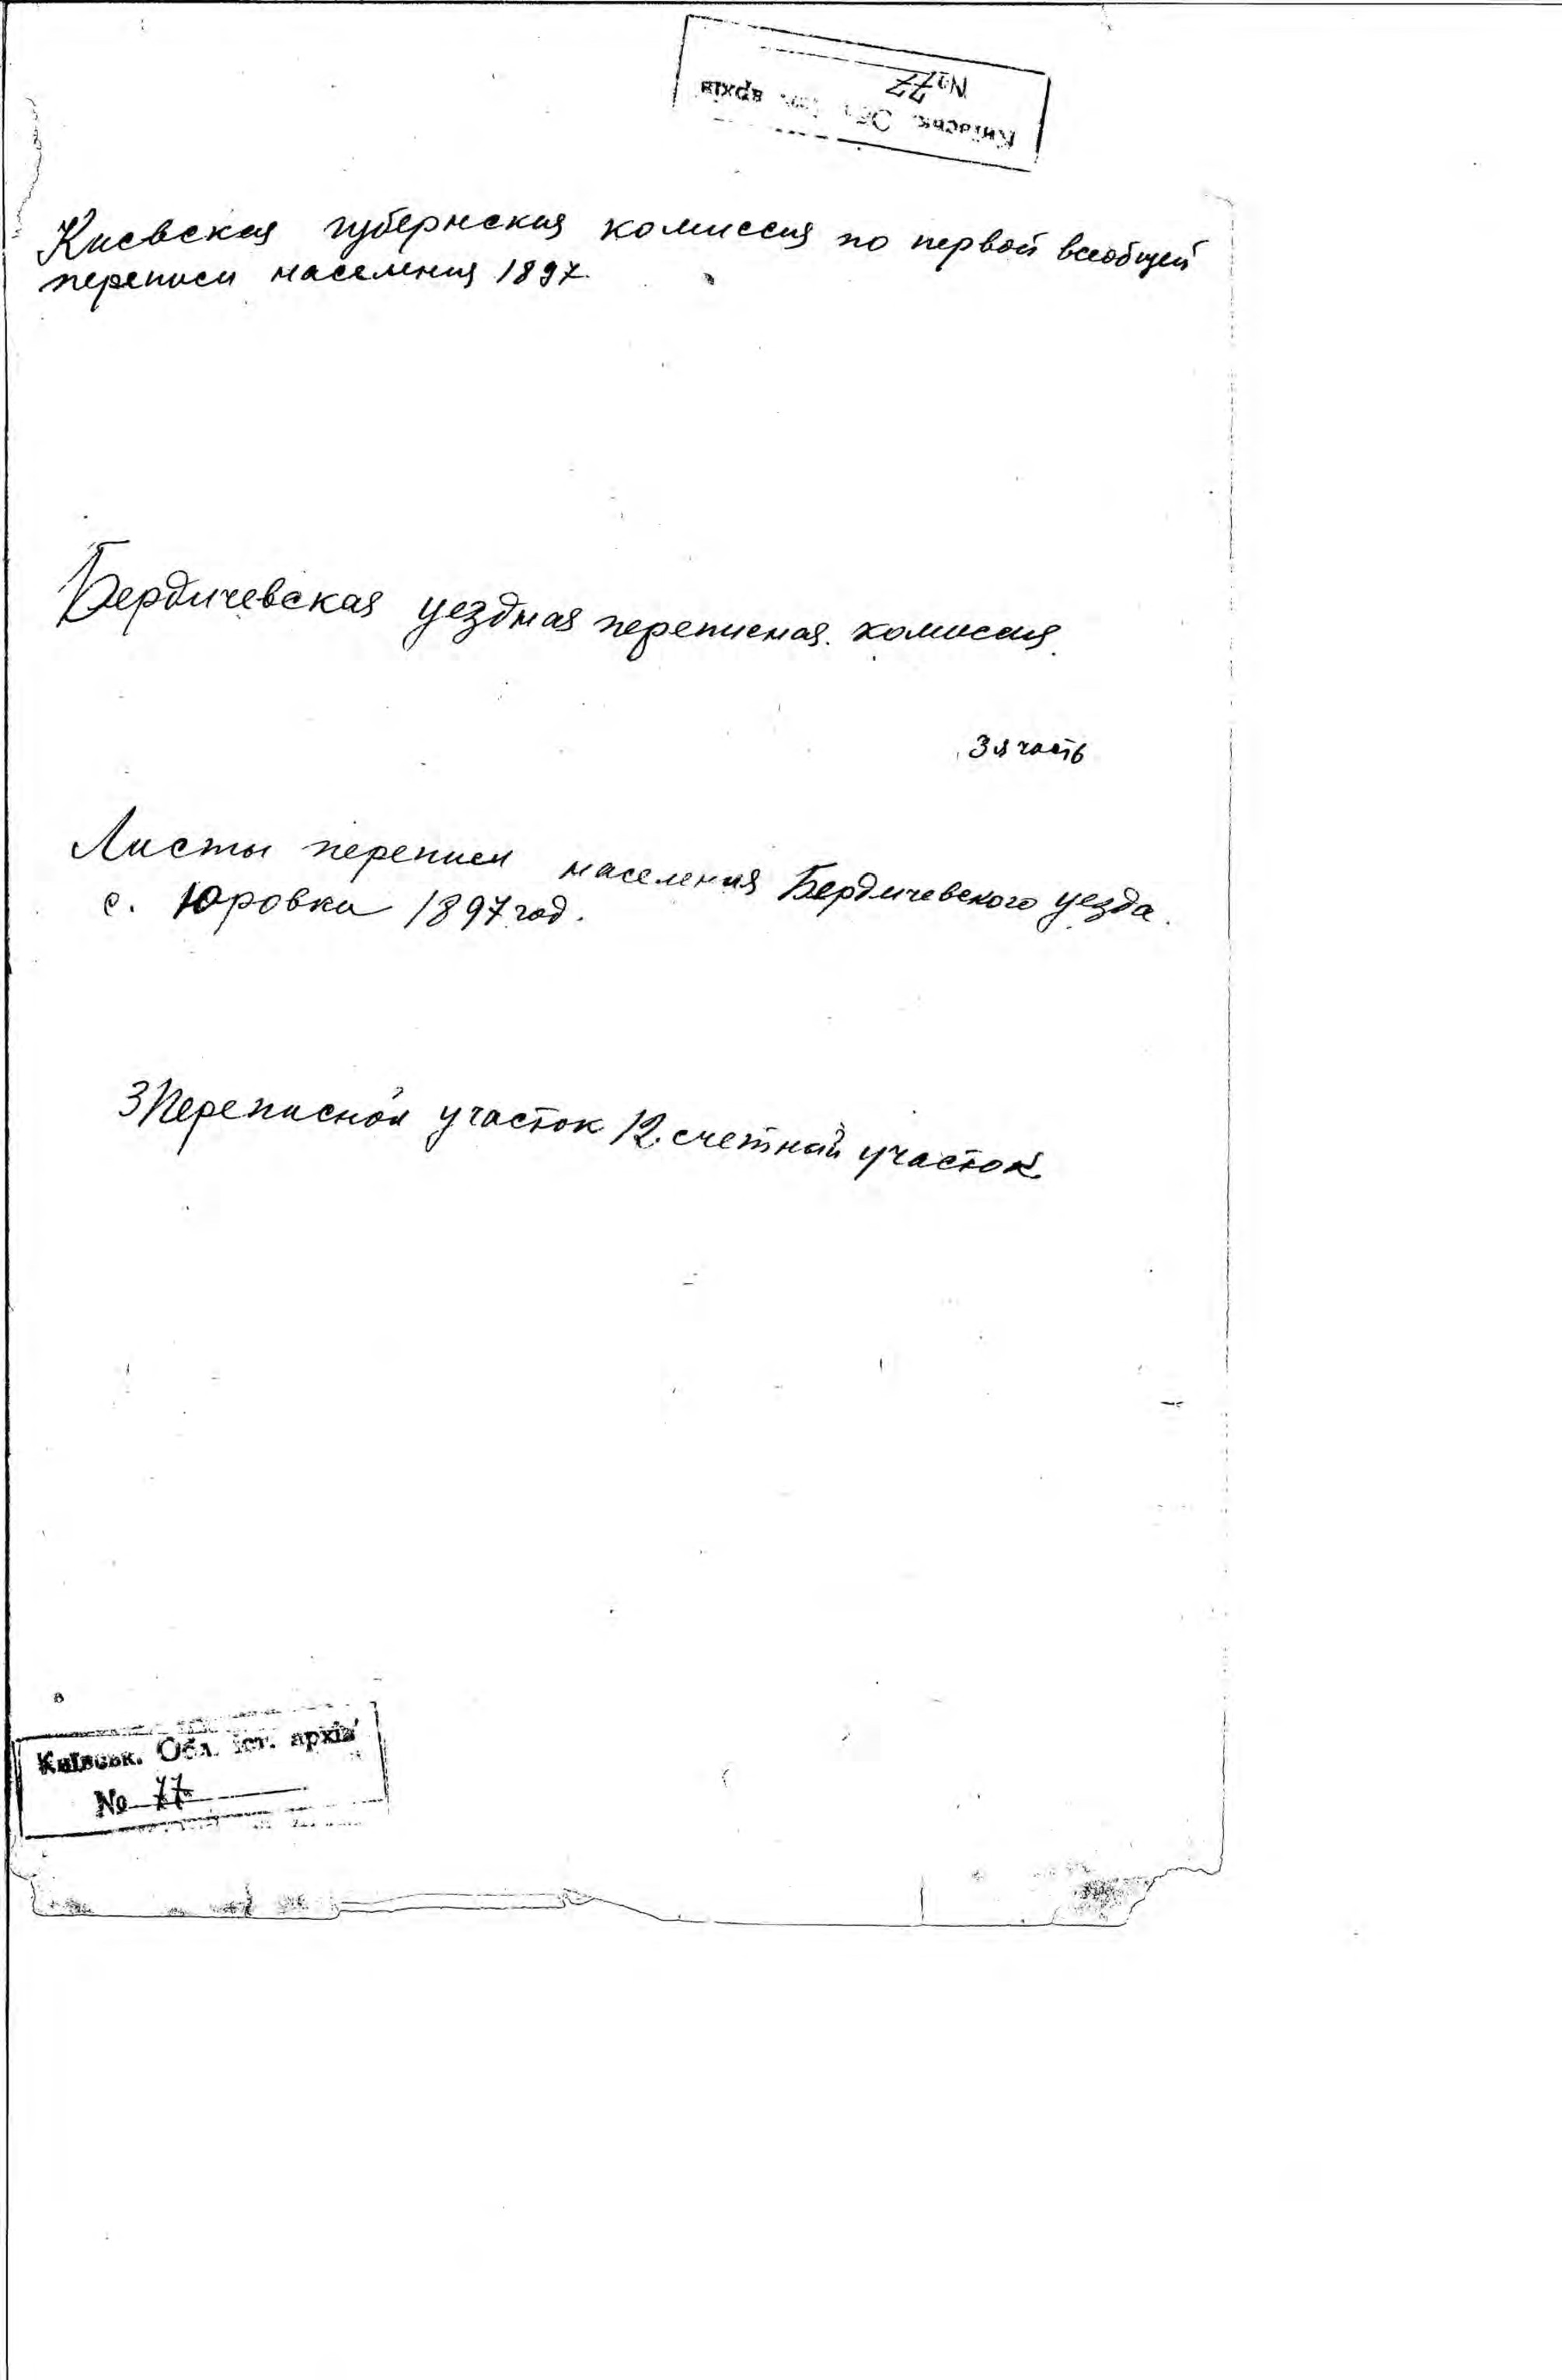 Київськ. Обл. іст. архів
№ 77
Киевская губернская комиссия по первой всеобщей
переписи населения 1897.
Бердичевская уездная переписная. комиссия.
3я часть
Листы переписи населения Бердичевского уезда.
с. Юровка 1897 год.
3 Переписной участок 12. счетный участок
Київськ. Обл. іст. архів
№ 77